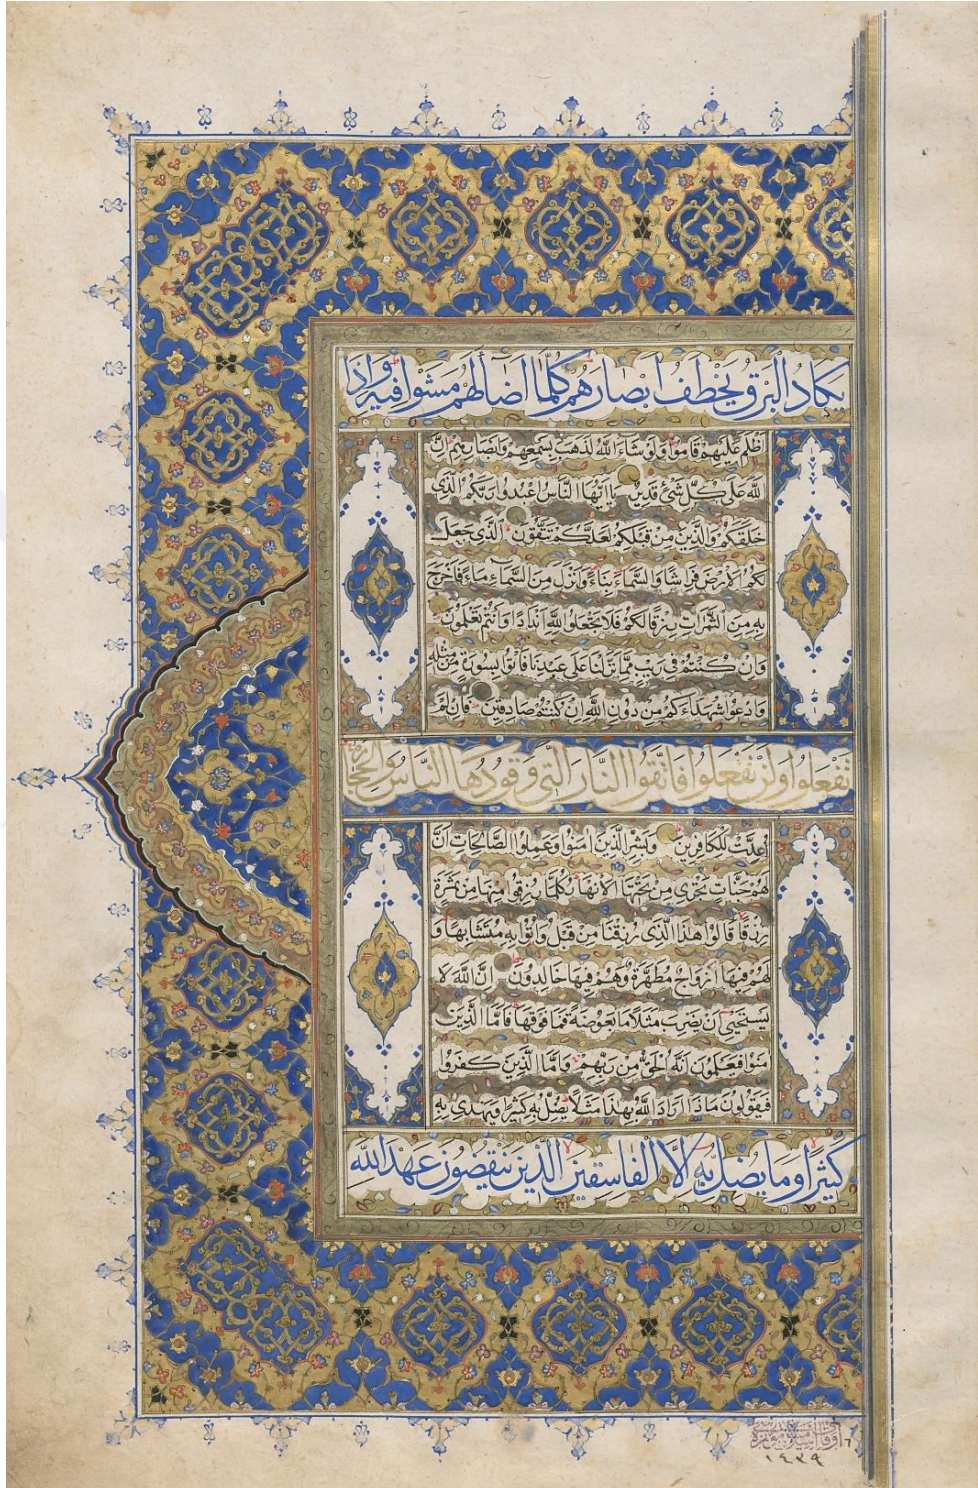 يَكَادُ الْبَرْقُ يَخْطَفُ اَبْصَارَهُمْ كُلَّمَا اَضَاۤءَ لَهُمْ مَشَوْا فِيهِ وَاِذَا
اَظْلَمَ عَلَيْهِمْ قَامُوا وَلَوْ شَاۤءَ اللّٰهُ لَذَهَبَ بِسَمْعِهِمْ وَاَبْصَارِهِمْ اِنَّ
اللّٰهَ عَلٰى كُلِّ شَيْءٍ قَدِيرٌ يَا اَيُّهَا النَّاسُ اعْبُدُوا رَبَّكُمُ الَّذِي
خَلَقَكُمْ وَالَّذِينَ مِنْ قَبْلِكُمْ لَعَلَّكُمْ تَتَّقُونَ اَلَّذِي جَعَلَ
لَكُمُ الْاَرْضَ فِرَاشًا وَالسَّمَاۤءَ بِنَاۤءً وَاَنْزَلَ مِنَ السَّمَاۤءِ مَاۤءً فَاَخْرَجَ
بِهِ مِنَ الثَّمَرَاتِ رِزْقًا لَكُمْ فَلَا تَجْعَلُوا لِلّٰهِ اَنْدَادًا وَاَنْتُمْ تَعْلَمُونَ
وَاِنْ كُنْتُمْ فِي رَيْبٍ مِمَّا نَزَّلْنَا عَلٰى عَبْدِنَا فَاْتُوا بِسُورَةٍ مِنْ مِثْلِهِ
وَادْعُوا شُهَدَاۤءَكُمْ مِنْ دُونِ اللّٰهِ اِنْ كُنْتُمْ صَادِقِينَ فَاِنْ لَمْ
تَفْعَلُوا وَلَنْ تَفْعَلُوا فَاتَّقُوا النَّارَ الَّتِي وَقُودُهَا النَّاسُ وَالْحِجَارَةُ
اُعِدَّتْ لِلْكَافِرِينَ وَبَشِّرِ الَّذِينَ اٰمَنُوا وَعَمِلُوا الصَّالِحَاتِ اَنَّ
لَهُمْ جَنَّاتٍ تَجْرِي مِنْ تَحْتِهَا الْاَنْهَارُ كُلَّمَا رُزِقُوا مِنْهَا مِنْ ثَمَرَةٍ
رِزْقًا قَالُوا هٰذَا الَّذِي رُزِقْنَا مِنْ قَبْلُ وَاُتُوا بِهِ مُتَشَابِهًا وَ
لَهُمْ فِيهَا اَزْوَاجٌ مُطَهَّرَةٌ وَهُمْ فِيهَا خَالِدُونَ اِنَّ اللّٰهَ لَا
يَسْتَحْيِي اَنْ يَضْرِبَ مَثَلًا مَا بَعُوضَةً فَمَا فَوْقَهَا فَاَمَّا الَّذِينَ
اٰمَنُوا فَيَعْلَمُونَ اَنَّهُ الْحَقُّ مِنْ رَبِّهِمْ وَاَمَّا الَّذِينَ كَفَرُوا
فَيَقُولُونَ مَاذَا اَرَادَ اللّٰهُ بِهٰذَا مَثَلًا يُضِلُّ بِهِ كَثِيرًا وَيَهْدِي بِهِ
كَثِيرًا وَمَا يُضِلُّ بِهِ اِلَّا الْفَاسِقِينَ الَّذِينَ يَنْقُضُونَ عَهْدَ اللّٰهِ